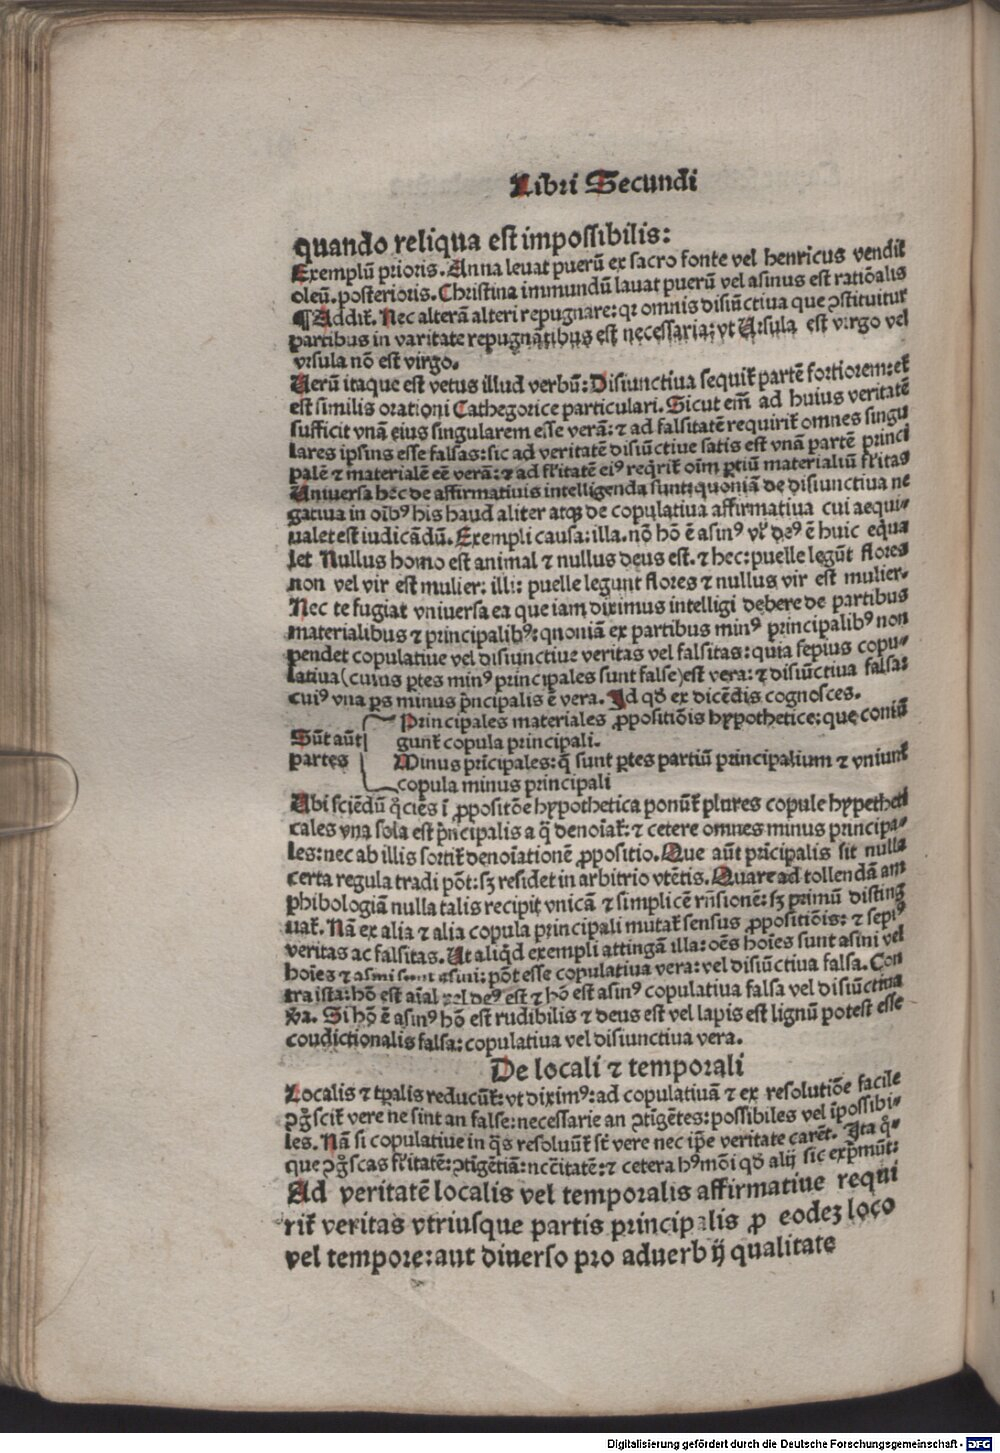 Libri Secundi
quando reliqua est impossibilis:
Exemplũ prioris. Anna leuat puerũ ex sacro fonte vel henricus vendit
oleũ. posterioris. Christina immundũ lauat puerũ vel asinus est ratiõalis
¶ Addit̃. Nec alterã alteri repugnare: qr omnis disiũctiua que ꝯstituitur
partibus in varitate repugnãtibus est necessaria: vt Ursula est virgo vel
vrsula nõ est virgo.
Uerũ itaque est vetus illud verbũ: Disiunctiua sequit̃ partẽ fortiorem: et̃
est similis orationi Cathegorice particulari. Sicut em̃ ad huius veritatẽ
sufficit vnã eius singularem esse verã: ⁊ ad falsitatẽ requirit̃ omnes singu
lares ipsius esse falsas: sic ad veritatẽ disiũctiue satis est vnã partẽ princi
palẽ ⁊ materialẽ eẽ verã: ⁊ ad fl̃itatẽ eiꝰ reqr̃it̃ oĩm ꝑtiũ materialiũ fl̃itas
Uniuersa hec de affirmatiuis intelligenda sunt: quoniã de disiunctiua ne
gatiua in oĩbꝰ his haud aliter atqꝫ de copulatiua affirmatiua cui aequi⸗
ualet est iudicãdũ. Exempli causa: illa. nõ hõ ẽ asinꝰ vl̃ deꝰ ẽ huic equa
let Nullus homo est animal ⁊ nullus deus est. ⁊ hec: puelle legũt flores
non vel vir est mulier: illi: puelle legunt flores ⁊ nullus vir est mulier.
Nec te fugiat vniuersa ea que iam diximus intelligi debere de partibus
materialibus ⁊ principalibꝰ: quoniã ex partibus minꝰ principalibꝰ non
pendet copulatiue vel disiunctiue veritas vel falsitas: quia sepius copu⸗
latiua (cuius ꝑtes minꝰ principales sunt false) est vera: ⁊ disiũctiua falsa:
cuiꝰ vna ꝑs minus p̃ncipalis ẽ vera. Id qd̃ ex dicẽdis cognosces.
Sũt aũt
partes
Principales materiales ꝓpositiõis hypothetice: que coniũ
gunt̃ copula principali.
Minus prĩcipales: q̃ sunt ꝑtes partiũ principalium ⁊ vniunt̃
copula minus principali
Ubi sciẽdũ q̃ciẽs ĩ ꝓpositõe hypothetica ponũt̃ plures copule hypetheti
cales vna sola est p̃ncipalis a q̃ denoĩat̃: ⁊ cetere omnes minus principa⸗
les: nec ab illis sortit̃ denoĩationẽ ꝓpositio. Que aũt prĩcipalis sit nulla
certa regula tradi põt: sꝫ residet in arbitrio vtẽtis. Quare ad tollendã am
phibologiã nulla talis recipit vnicã ⁊ simplicẽ rñsionẽ: sꝫ primũ disting
uat̃. Nã ex alia ⁊ alia copula prĩncipali mutat̃ sensus ꝓpositiõis: ⁊ sepiꝰ
veritas ac falsitas. Ut aliq̃d exempli attingã illa: oẽs hoĩes sunt asini vel
hoĩes ⁊ asini sunt asini: põt esse copulatiua vera: vel disiũctiua falsa. Con
tra ista: hõ est aĩal vel deꝰ est ⁊ hõ est asinꝰ copulatiua falsa vel disiũctiua
ṽa. Si hõ ẽ asinꝰ hõ est rudibilis ⁊ deus est vel lapis est lignũ potest esse
coudictionalis falsa: copulatiua vel disiunctiua vera.
De locali ⁊ temporali
Localis ⁊ tꝑalis reducũt̃: vt diximꝰ: ad copulatiuã ⁊ ex resolutiõe facile
ꝯg̃scit̃ vere ne sint an false: necessarie an ꝯtĩgẽtes: possibiles vel ĩpossibi⸗
les. Nã si copulatiue in q̃s resoluũt̃ st̃ vere nec ip̃e veritate carẽt. Ita q̃⸗
que ꝯg̃scas fl̃itatẽ: ꝯtĩgẽtiã: ncẽitatẽ: ⁊ cetera hꝰmõi qd̃ alij sic exp̃mũt:
Ad veritatẽ localis vel temporalis affirmatiue requi
rit̃ veritas vtriusque partis principalis ꝓ eodeꝫ loco
vel tempore: aut diuerso pro aduerbij qualitate